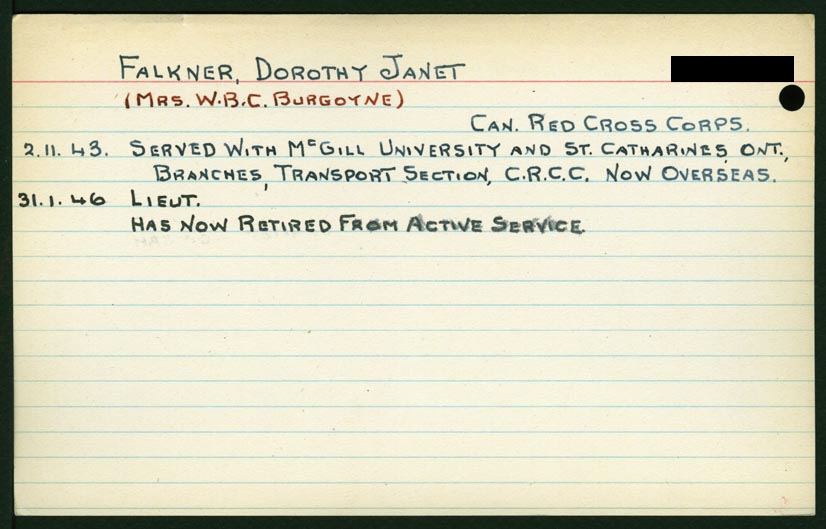 FALKNER, DOROTHY JANET
(MRS. W.B.C. BURGOYNE)
CAN. RED CROSS CORPS.
2.11.43. SERVED WITH McGILL UNIVERSITY AND ST. CATHARINES, ONT.,
BRANCHES, TRANSPORT SECTION, C.R.C.C. NOW OVERSEAS.
31.1.46 LIEUT.
HAS NOW RETIRED FROM ACTIVE SERVICE.